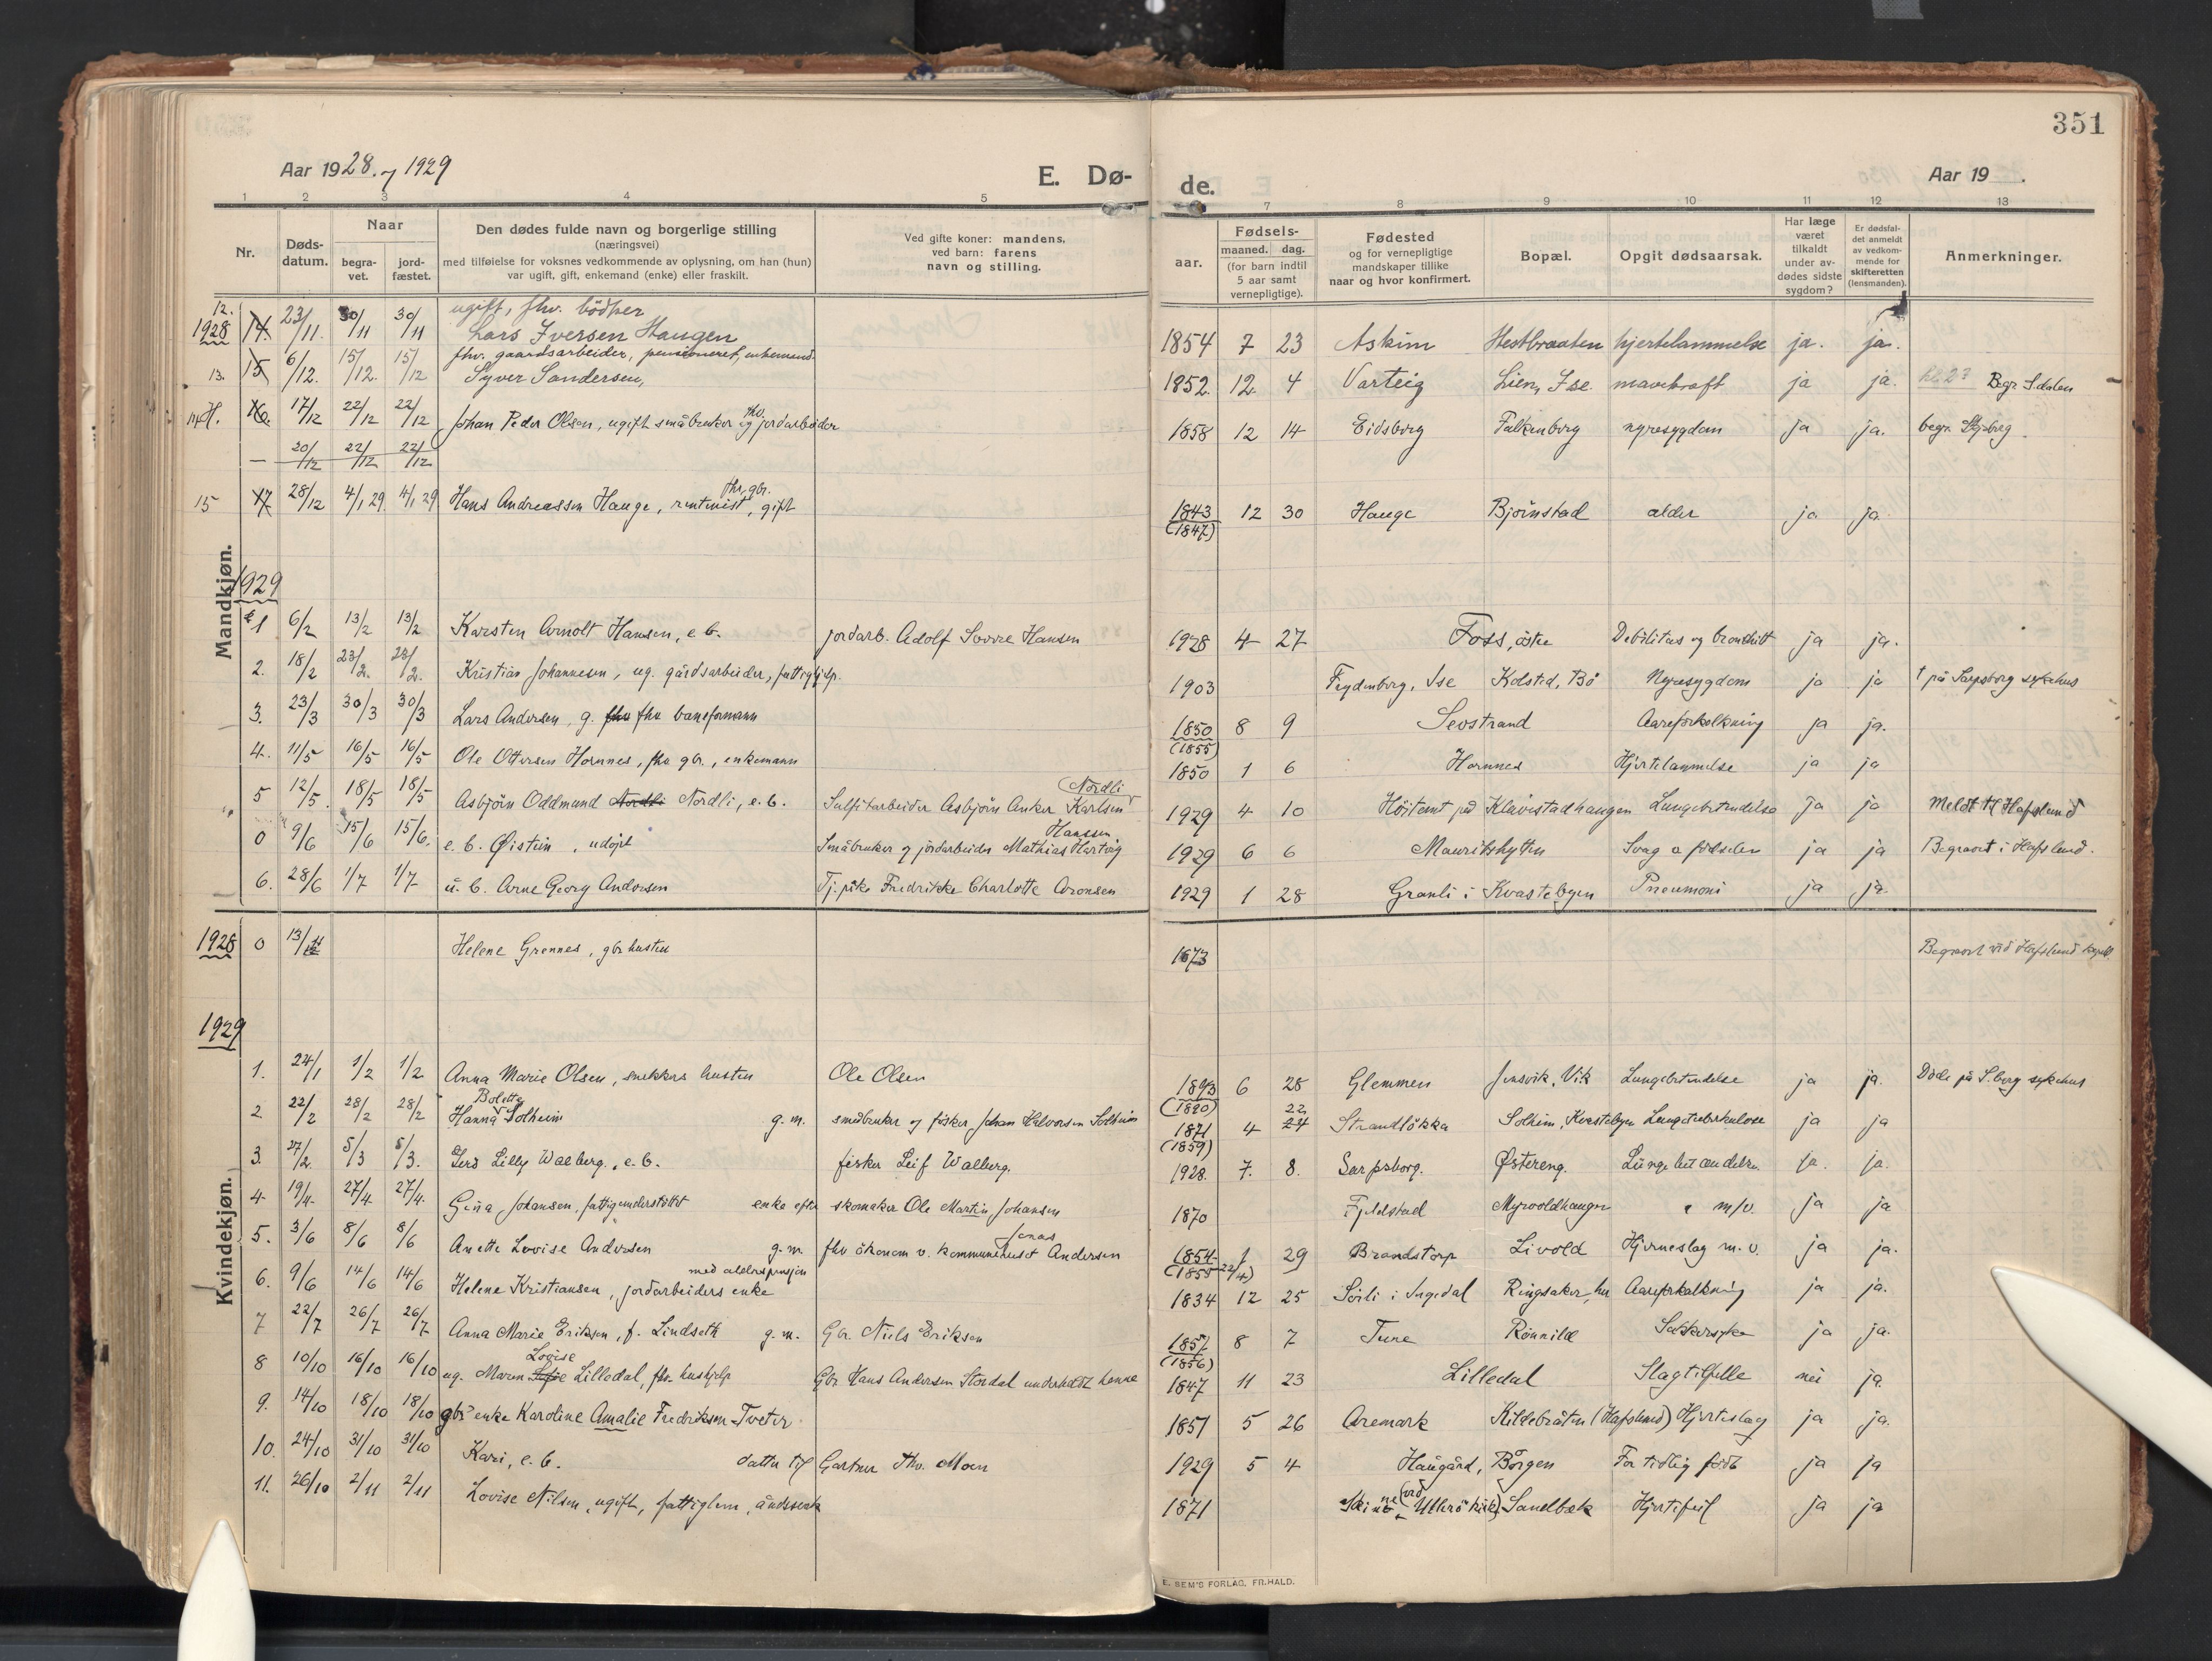 351
Aar 1928 og 1929
E. Dø-
de.
Aar 19 .
1 2 3 4 5 7 8 9 10 11 12 13
Nr.
Døds-
datum.
Naar
begra-
vet.
jord-
fæstet.
Den dødes fulde navn og borgerlige stilling
(næringsvei)
med tilføielse for voksnes vedkommende av oplysning, om han (hun)
var ugift, gift, enkemand (enke) eller fraskilt.
Ved gifte koner: mandens,
ved barn: farens
navn og stilling.
aar.
Fødsels-
maaned. dag.
(for barn indtil
5 aar samt
vernepligtige).
Fødested
og for vernepligtige
mandskaper tillike
naar og hvor konfirmert.
Bopæl.
Opgit dødsaarsak.
Har læge
været
tilkaldt
under av-
dødes sidste
sygdom?
Er dødsfal-
det anmeldt
av vedkom-
mende for
skifteretten
(lensmanden).
Anmerkninger.
Mandkjøn.
12. ugift, fhv. bödker
1928 14. 23/11. 30/11 30/11 Lars Iversen Haugen 1854 7 23 Askim Hestbraaten hjertelammelse ja. ja.
fhv. gaardsarbeider, pensioneret, enkemand.
13. 15 6/12. 15/12. 15/12 Syver Sandersen, 1852. 12. 4 Varteig Lien, Ise. mavekraft ja ja. Begr. S.dalen
14. 16. 17/12 22/12 22/12 Johan Peder Olsen, ugift småbruker og fhv. jordarbeider 1858 12 14 Eidsberg Falkenborg nyresygdom ja ja. begr.
— 20/12 22/12 22/12
15 17 28/12 4/1 29. 4/1 29 Hans Andreassen Hauge, rentenist, fhv. gbr. gift 1843 12 30 Hauge Bjørnstad alder ja ja
(1847)
1929
1 6/2 13/2 13/2 Karsten Arnolt Hansen, e. b. jordarb. Adolf Sverre Hansen 1928 4 27 Foss, östre Debilitas og bronchitt ja ja.
2. 18/2 23/2. 23/2. Kristian Johannesen, ug. gårdsarbeider, fattighjelp. 1903 Frydenborg, Ise Kolstad, Bö Nyresygdom ja ja † på Sarpsborg sykehus
3. 23/3 30/3 30/3 Lars Andersen, g. fhv fhv baneformann 1850 8 9 Sevstrand Aareforkalkning ja ja.
(1855)
4. 11/5 16/5 16/5 Ole Ottersen Hornnes, fhv gbr., enkemann 1850 1 6 Hornnes Hjertelammelse ja ja
5 12/5. 18/5 18/5 Asbjörn Oddmund Nordli Nordli, e. b. Sulfitarbeider Asbjörn Anker Karlsen Nordli 1929 4 10 Höitomt ved Klavestadhaugen Lungebetendelse ja ja Meldt til Hafslund
0 9/6 15/6 15/6. e. b. Øistein, udöpt Småbruker og jordarbeider Mathias Hartvig Hanssen 1929 6 6 Mauritshytten Svag a födselen ja ja Begravet i Hafslund.
6. 28/6 1/7 1/7 u. b. Arne Georg Andersen Tj. pike Fredrikke Charlotte Aronsen 1929 1 28 Granli i Kvastebyen Pneumoni ja ja.
Kvindekjøn.
1928 0 13/11 Helene Grennes, gbr husten 1873 Begravet ved Hafslund kapell.
1929
1. 24/1 1/2 1/2 Anna Marie Olsen, snekkers husten Ole Olsen 1893 6 28 Glemmen Jensvik, Vik Lungebetendelse ja ja. Döde på S.borg sykehus
(1890)
2 22/2 28/2 28/2 Hanna Bolette Solheim g. m. småbruker og fisker Johan Halvorsen Solheim 1871 4 22 24 Strandlökka Solheim, Kvastebyen Lungetuberkulose ja ja
(1859)
3. 27/2. 5/3 5/3. Gerd Lilly Walberg, e. b. fisker Leif Walberg. 1928. 7. 8. Sarpsborg. Østereng. Lungebetændelse. ja. ja.
4 19/4. 27/4. 27/4. Gina Johansen, fattigunderstöttet enke efter skomaker Ole Martin Johansen 1870 Fjeldstad Myrvoldhaugen " m/v. ja ja
5. 3/6 8/6 8/6 Anette Lovise Andersen g. m. fhv ökonom v. kommunehuset Jonas Andersen 1854 1 29 Brandstorp Livold Hjerneslag m. v. ja ja.
(1855 22/4)
6. 9/6 14/6 14/6 Helene Kristiansen, jordarbeiders enke med alderspensjon 1834 12 25 Sörli i Ingedal Ringsaker, her Aareforkalkning ja ja.
7 22/7 26/7 26/7 Anna Marie Eriksen, f. Lindseth g. m. Gbr. Niels Eriksen 1857 8 7 Tune Rönnild Sukkersyke ja ja.
(1856)
8 10/10 16/10 16/10 ug. Maren Lovise Sofie Lilledal, fhv hushjelp Gbr. Hans Andersen Stordal underholdt henne 1847 11 23 Lilledal Slagtilfelle nei ja.
9. 14/10 18/10 18/10 gbr enke Karoline Amalie Fredriksen-Tveter 1851 5 26 Aremark Kildebråten (Hafslund) Hjerteslag ja ja.
10. 24/10 31/10 31/10 Kari, e. b. datter til Gartner Thv. Moen 1929 5 4 Haugård, Borgen For tidlig födt ja ja
11. 26/10 2/11 2/11 Lovise Nilsen, ugift, fattiglem, åndssvak 1871 (ved Ullerö kirke) Sandbæk Hjertefeil ja ja
E. SEM'S FORLAG, FR.HALD.